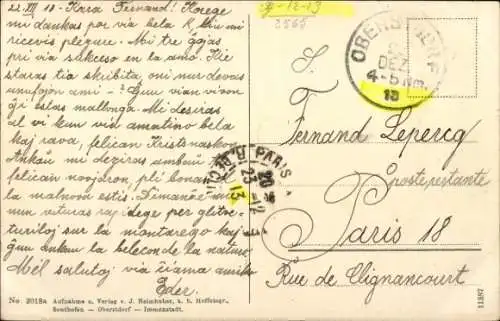 22. XII 13 - Kara Fernand! Korege
mi dankas por via bela K. kiun mi
ricevis plezure. Mi tre ĝojas
pri via sukceso en la amo. Kie
staras tia skribita, oni nur devas
unufojon ami - ? Ĝun vian vivon
ĝi estas mallonga. Mi deziras
al vi kun via amatino bela
kaj rava, felican Kristnaskon
Ankaŭ mi deziras
felican novjaron, pli bonan
la malnova estis. Dimanĉe mi
nun veturas rapidege per
turiloj sur la montarego kaj
ĝuu ankau la belecon de la naturo
Mél salutoj via ĉiama amiko
Eder.
No. 2018a Aufnahme u. Verlag v. J. Heimhuber, k. b. Hoffotogr.,
Sonthofen - Oberstdorf - Immenstadt.
-12-13
2565
OBERSTDORF
DEZ
4-5 Nm.
13
PARIS
20
23 -12
13
S.
Fernand Lepercq
Posterestante
Paris 18
Rue de Clignancourt
11887